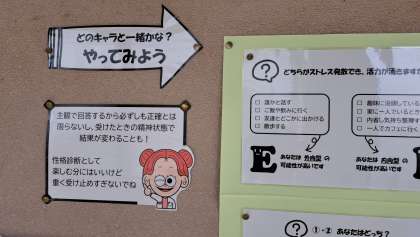 どのキャラと一緒かな？
やってみよう
主観で回答するから必ずしも正確とは
限らないし、受けたときの精神状態で
結果が変わることも！
性格診断として
楽しむ分にはいいけど
重く受け止めすぎないでね
どちらがストレス発散でき、活力が湧きますか
□ 誰かと話す
□ ご飯や飲みに行く
□ 友達とどこかに出かける
□ 散歩する
□ 趣味に没頭している
□ 家に一人でいると
□ 内省し気ち整理す
□ 一人でカフェに行く
E
あなたは 外向型 の
可能性が高いです
あなたは 内向型
可能性が高い
①-② あなたはどっち？